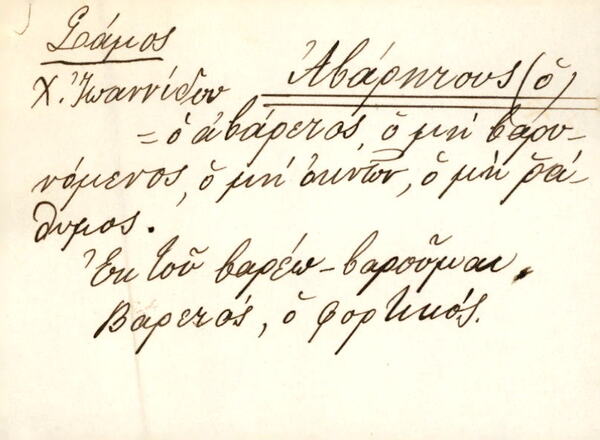 Σάμος
Χ. Ἰωαννίδου
Ἀβάρητους (ὁ)
= ὁ ἀβάρετος, ὁ μὴ βαρυ-
νόμενος, ὁ μὴ ὀκνῶν, ὁ μὴ ῥά-
θυμος.
Ἐκ τοῦ βαρέω - βαροῦμαι.
Βαρετός, ὁ φορτικός.